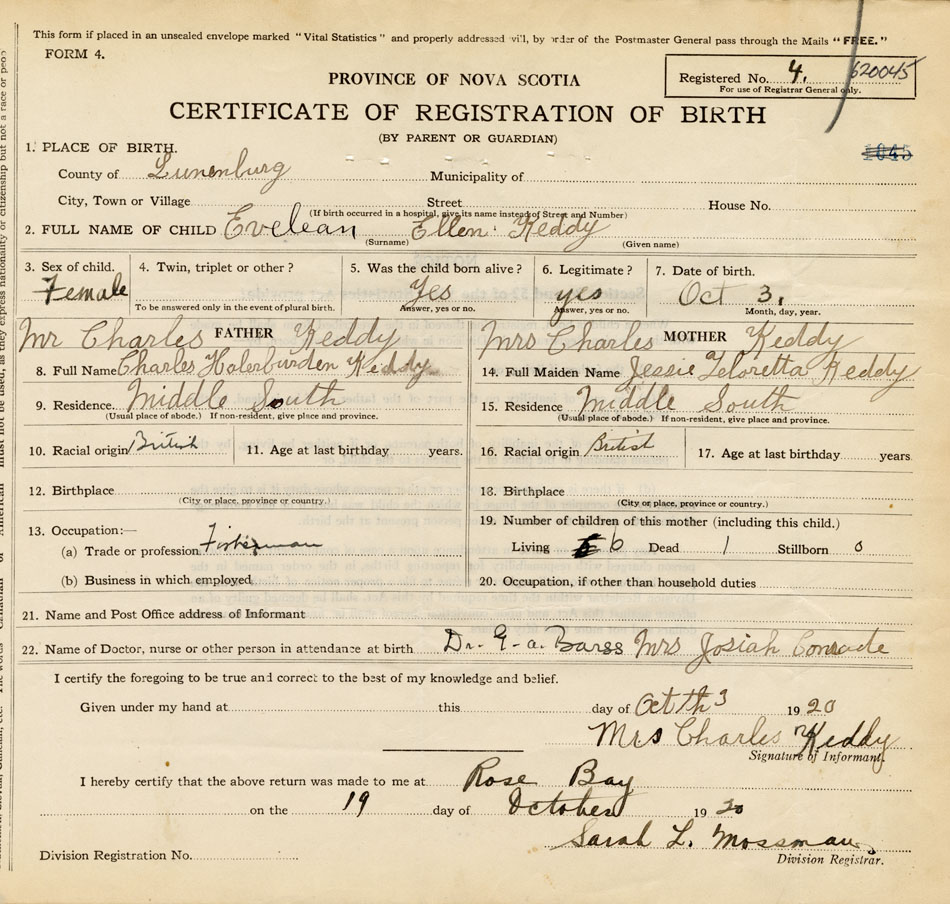 This form if placed in an unsealed envelope marked "Vital Statistics" and properly addressed will, by order of the Postmaster General pass through the Mails "FREE."
FORM 4.
Registered No. 4. 620045
For use of Registrar General only.
PROVINCE OF NOVA SCOTIA
CERTIFICATE OF REGISTRATION OF BIRTH
(BY PARENT OR GUARDIAN)
1. PLACE OF BIRTH.
County of Lunenburg Municipality of
City, Town or Village Street House No.
(If birth occurred in a hospital, give its name instead of Street and Number)
2. FULL NAME OF CHILD Evelean Ellen Keddy
(Surname) (Given name)
3. Sex of child. 4. Twin, triplet or other? 5. Was the child born alive? 6. Legitimate? 7. Date of birth.
Female Yes yes Oct 3.
To be answered only in the event of plural birth. Answer, yes or no. Answer, yes or no. Month, day, year.
Mr Charles FATHER Keddy Mrs Charles MOTHER Keddy
8. Full Name Charles Keddy 14. Full Maiden Name Jessie Keddy
9. Residence. Middle South 15. Residence Middle South
(Usual place of abode.) If non-resident, give place and province. (Usual place of abode.) If non-resident, give place and province.
10. Racial origin British 11. Age at last birthday years. 16. Racial origin British 17. Age at last birthday years
12. Birthplace 18. Birthplace
(City or place, province or country.) (City or place, province or country.)
13. Occupation:— 19. Number of children of this mother (including this child.)
(a) Trade or profession Fisherman Living 6 Dead 1 Stillborn 0
(b) Business in which employed 20. Occupation, if other than household duties
21. Name and Post Office address of Informant
22. Name of Doctor, nurse or other person in attendance at birth Dr. E. a. Barss Mrs Josiah Conrade
I certify the foregoing to be true and correct to the best of my knowledge and belief.
Given under my hand at this day of Oct th 3 1920
Mrs Charles Keddy
Signature of Informant.
I hereby certify that the above return was made to me at Rose Bay
on the 19 day of October 1920
Sarah L. Mossman
Division Registration No. Division Registrar.